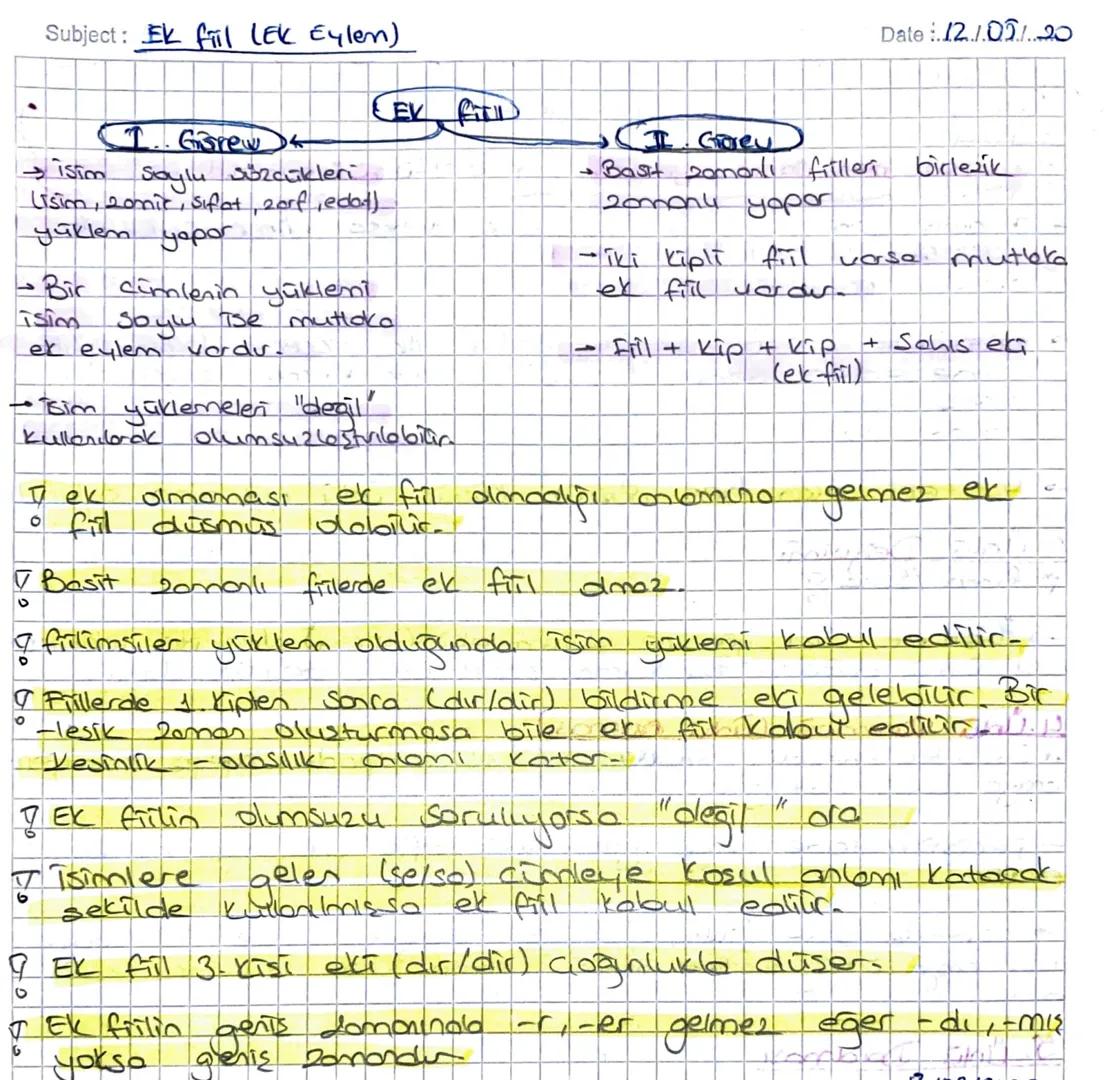 Subject: Ek fiil (Ek Eylem)
Date: 12/05/20
Ek fiil
I. Görev
II. Görev
→ isim soylu sözcükleri
(isim, zamir, sıfat, zarf, edat)
yüklem yapar
→ Bir cümlenin yüklemi
isim soylu ise mutlaka
ek eylem vardır.
→ isim yüklemeleri "değil"
kullanılarak olumsuzlaştırılabilir.
→ Basit zamanlı fiilleri birleşik
zamanlı yapar
→ iki kipli fiil varsa mutlaka
ek fiil vardır.
→ Fiil + Kip + Kip + Şahıs eki
(ek-fiil)
! ek olmaması ek fiil olmadığı anlamına gelmez ek
fiil düşmüş olabilir.
! Basit zamanlı fiilerde ek fiil olmaz.
! fiilimsiler yüklem olduğunda isim yüklemi kabul edilir.
! Fiillerde 1. kipten sonra (dır/dir) bildirme eki gelebilir. Bir
-leşik zaman oluşturmasa bile ek fiil kabul edilir.
Kesinlik - olasılık anlamı katar.
! Ek fiilin olumsuzu soruluyorsa "değil" ara
! İsimlere gelen (se/sa) cümleye koşul anlamı katacak
şekilde kullanılmışsa ek fiil kabul edilir.
! Ek fiil 3. kişi eki (dır/dir) çoğunlukla düşer.
! Ek fiilin geniş zamanında -r, -er gelmez eğer -dı, -mış
yoksa geniş zamandır